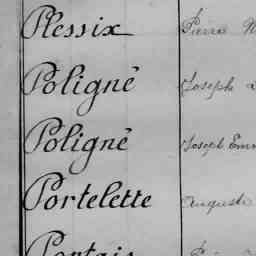 Plessix Pierre
Poligné Joseph
Poligné Joseph Emm
Portelette Auguste
Portais